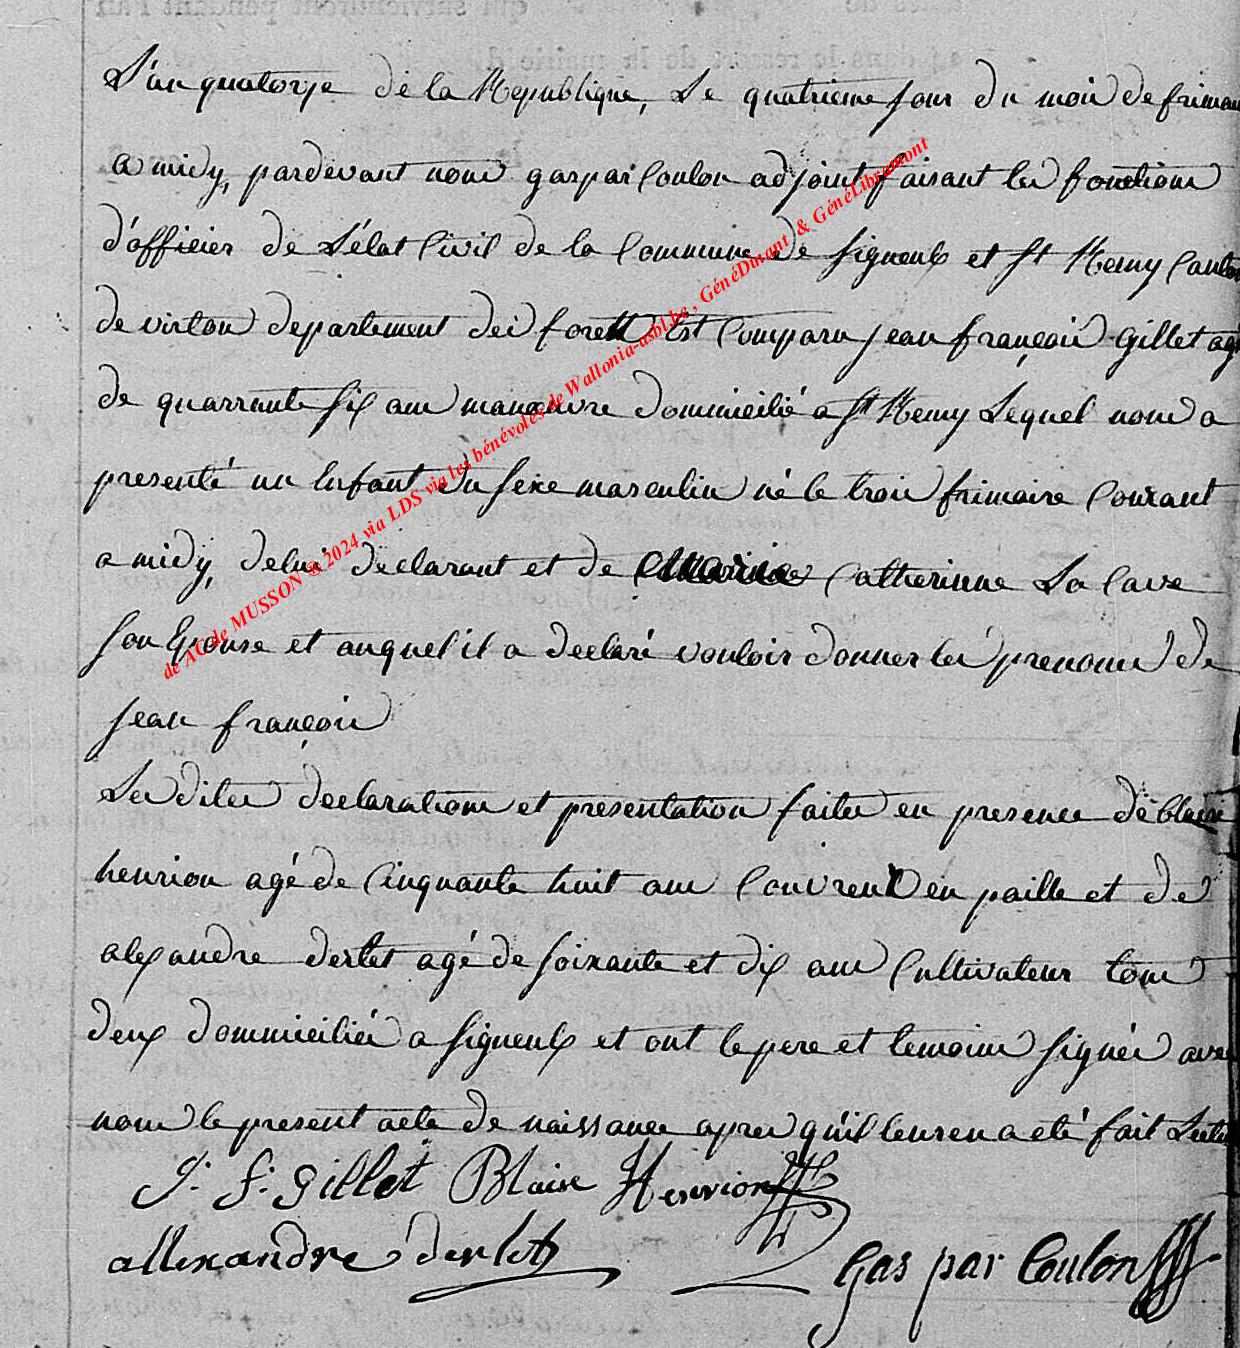 L'an quatorze de la Republique, Le quatrieme jour du mois de frimaire
a midy, pardevant nous gaspar Coulon adjoint faisant les fonctions
d'officier de L'état Civil de la Commune de Signeulx et St Remy Canton
de virton departement des forett Est Comparu jean françois Gillet agé
de quarrante six ans manœuvre dommicilié a St Remy Lequel nous a
presenté un Enfant du sexe masculin né le trois frimaire Courant
a midy, de lui declarant et de Marie Catherinne La Cave
son Epouse et auquel il a declaré vouloir donner les prenoms de
jean françois
Les dites declarations et presentation faites en presence de blaise
henrion agé de Cinquante huit ans Couvreur en paille et de
alexandre derlet agé de soixante et dix ans Cultivateur tous
deux dommiciliés a Signeulx et ont le pere et temoins signés avec
nous le present acte de naissance apres qu'il leur en a eté fait Lecture
J. f. Gillet Blaise Henrion
allexandre derlet
Gaspar Coulon
de AC de MUSSON ® 2024 via LDS via les bénévoles de Wallonia-asbl.be , GénéDinant & GénéLibramont